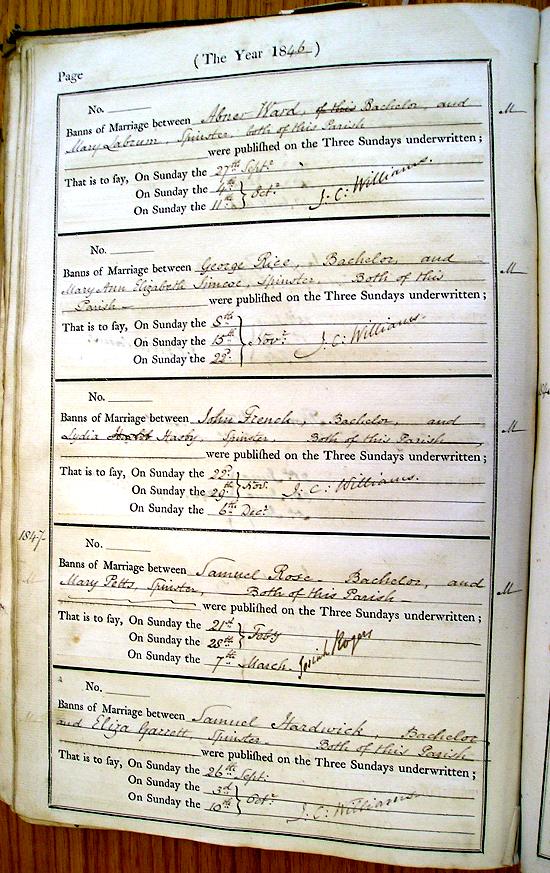 (The Year 1846)
Page
No.
Banns of Marriage between Abner Ward, of this Bachelor, and
Mary Labrum, Spinster both of this Parish
were published on the Three Sundays underwritten;
That is to say, On Sunday the 27th Septr
On Sunday the 4th Octr
On Sunday the 11th J. C. Williams.
M
No.
Banns of Marriage between George Rice, Bachelor, and
Mary Ann Elizabeth Simcoe, Spinster. Both of this
Parish were published on the Three Sundays underwritten;
That is to say, On Sunday the 8th
On Sunday the 15th Novr J. C. Williams.
On Sunday the 22d.
M
No.
Banns of Marriage between John French, Bachelor, and
Lydia Hasby, Spinster Both of this Parish
were published on the Three Sundays underwritten;
That is to say, On Sunday the 22d.
On Sunday the 29th Nov. J. C. Williams.
On Sunday the 6th Decr
M
1847
No.
Banns of Marriage between Samuel Rose Bachelor, and
Mary Petts, Spinster, Both of this Parish
were published on the Three Sundays underwritten;
That is to say, On Sunday the 21st
On Sunday the 28th Feby
On Sunday the 7th March. Josiah Rogers
M
No.
Banns of Marriage between Samuel Hardwick, Bachelor
and Eliza Garrett, Spinster Both of this Parish
were published on the Three Sundays underwritten;
That is to say, On Sunday the 26th Sept:
On Sunday the 3d Octr
On Sunday the 10th J. C. Williams